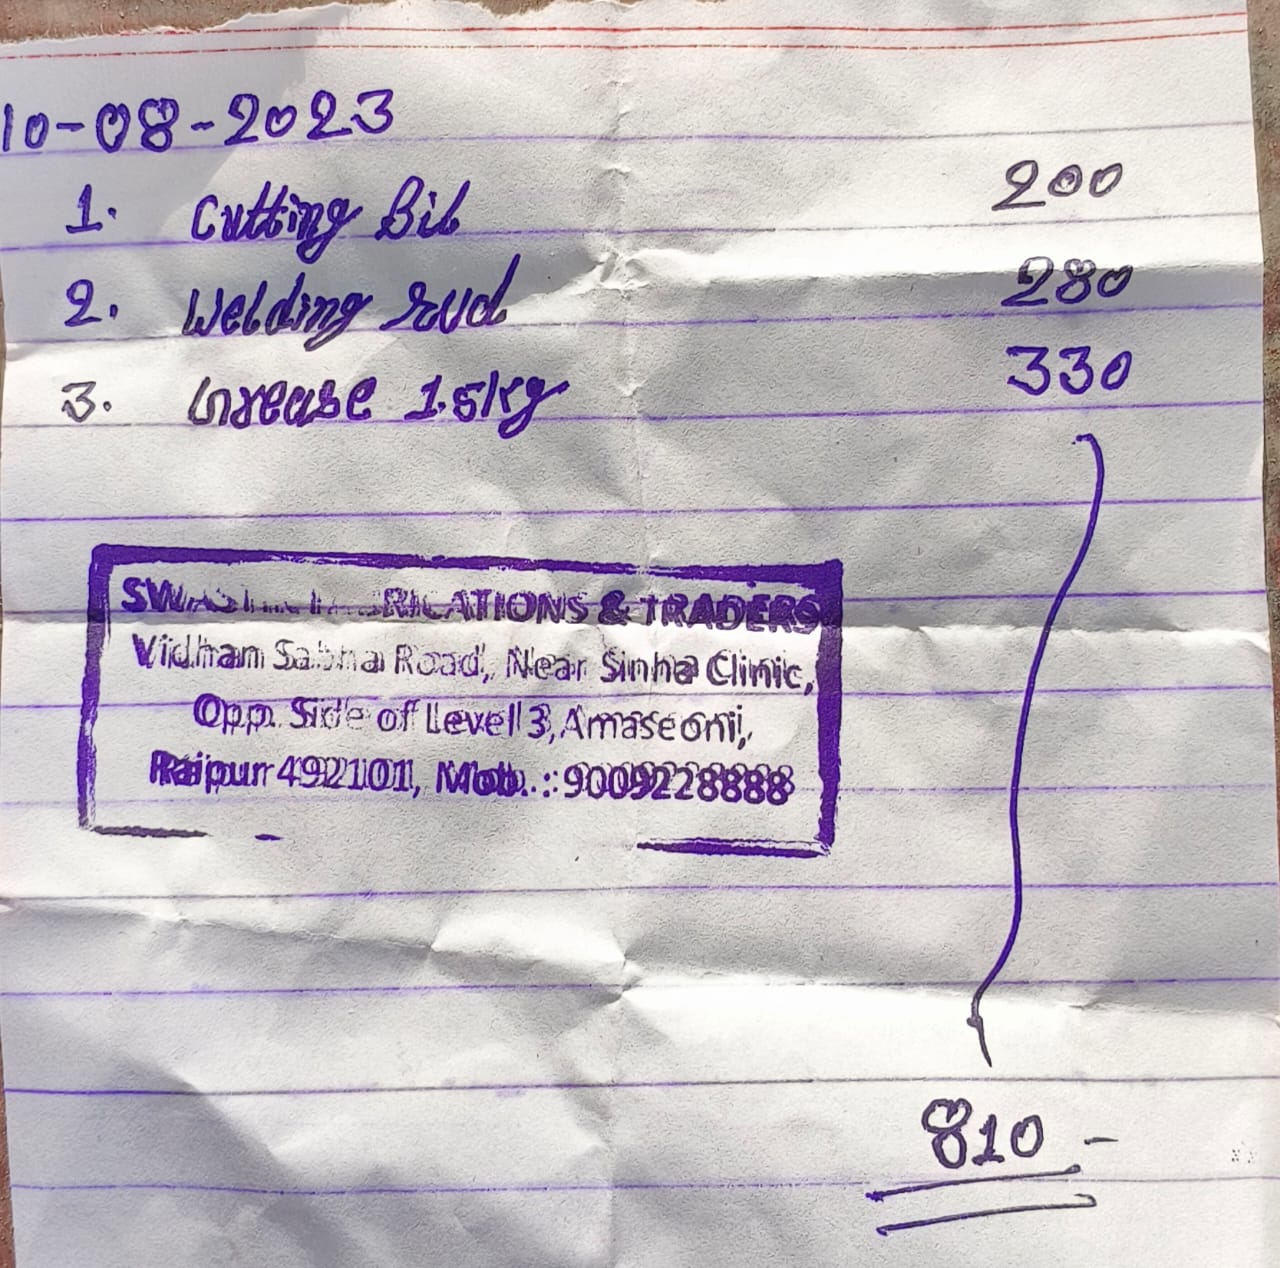 10-08-2023
1. Cutting Bit 200
2. Welding rud 280
3. Grease 1.5kg 330
& TRADERS
Vidhan Sabha Road, Near Sinha Clinic,
Opp. Side of Level 3, Amaseoni,
Raipur 492101, Mob.: 9009228888
810 -